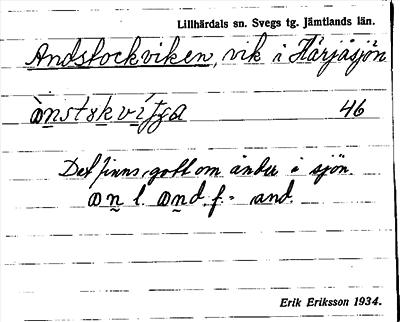 Lillhärdals sn. Svegs tg. Jämtlands län.
Andstockviken, vik i Härjåsjön
46
Det finns gott om änder i sjön.
l. f. = and.
Erik Eriksson 1934.